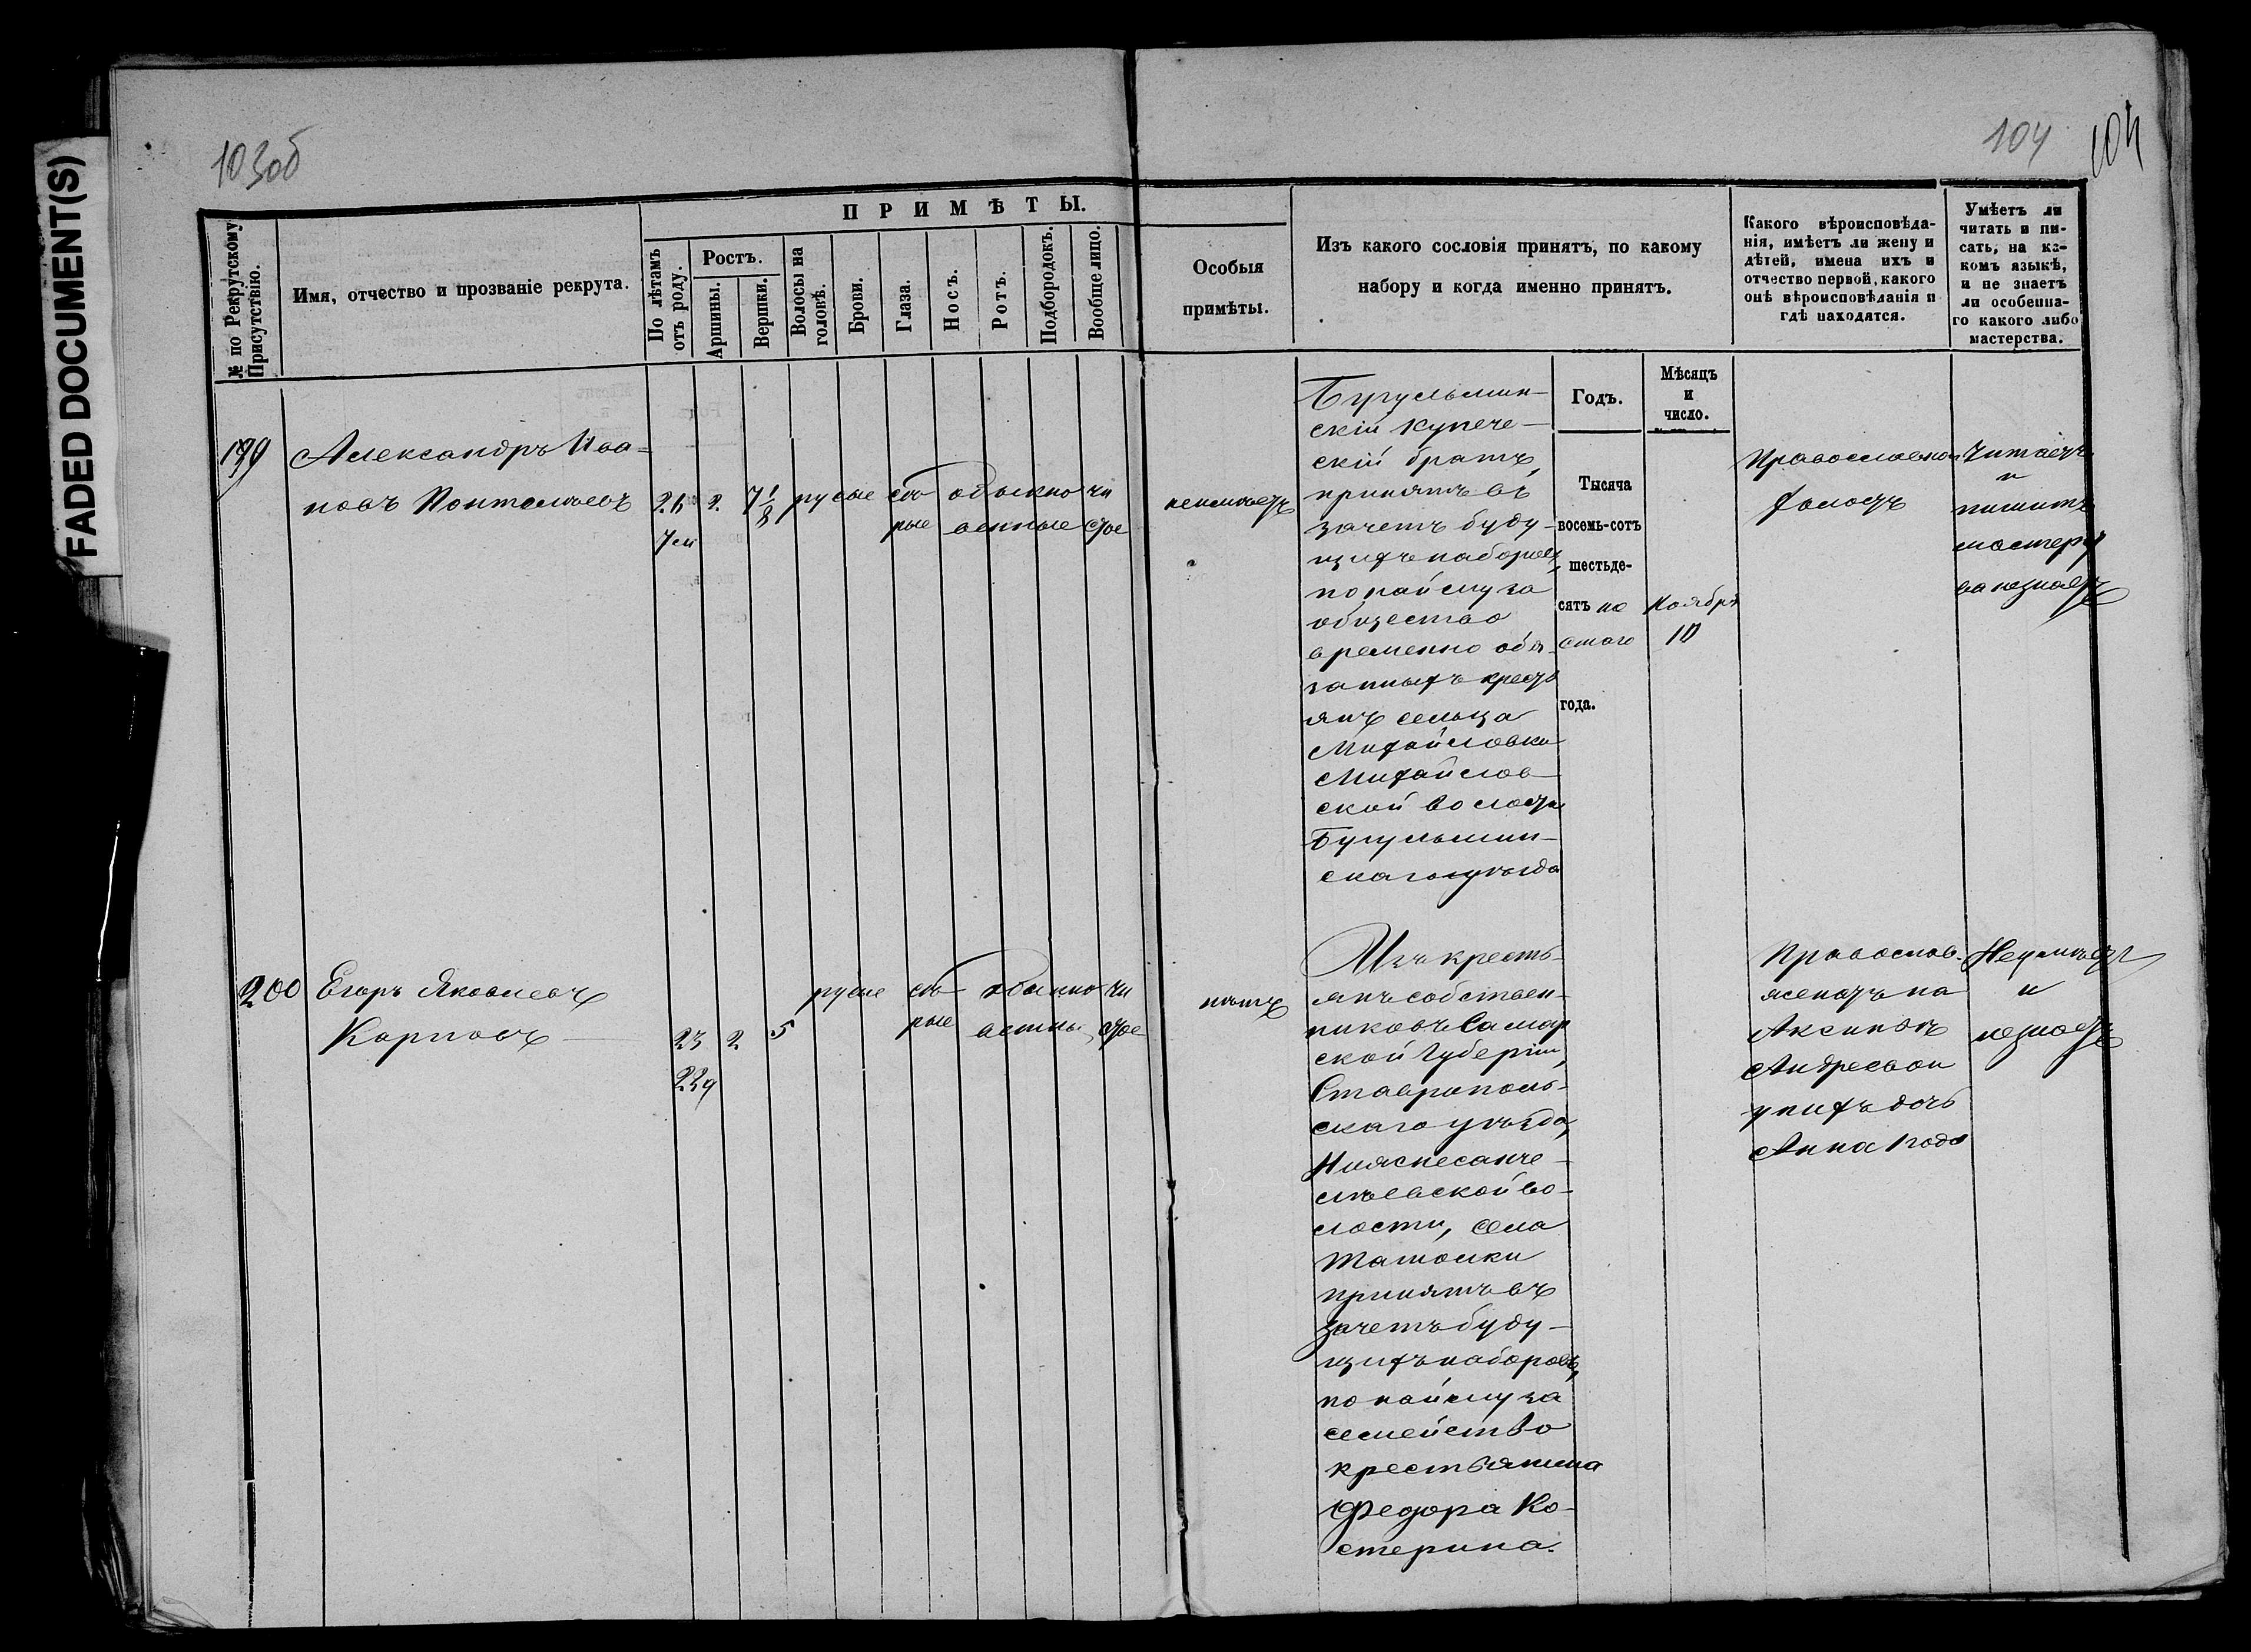 FADED DOCUMENT(S)
103об
104
104
№ по Рекрутскому Присутствію.
Имя, отчество и прозваніе рекрута.
ПРИМѢТЫ.
По лѣтамъ отъ роду.
Ростъ.
Аршины.
Вершки.
Волосы на головѣ.
Брови.
Глаза.
Носъ.
Ротъ.
Подбородокъ.
Вообще лицо.
Особыя
примѣты.
Изъ какого сословія принятъ, по какому
набору и когда именно принятъ.
Какого вѣроисповѣда-
нія, имѣетъ ли жену и
дѣтей, имена ихъ и
отчество первой, какого
онѣ вѣроисповѣданія и
гдѣ находятся.
Умѣетъ ли
читать и пи-
сать, на ка-
комъ языкѣ,
и не знаетъ
ли особенна-
го какого либо
мастерства.
199
Александръ Ива-
новъ
26
7 м
2
7 1/8
русые
сѣ
рые
обыкно
венные
чи
стое
неимѣетъ
Бугульмин-
скій купече-
скій братъ,
принятъ въ
зачетъ буду-
щихъ наборовъ,
по найму за
общество
временно обя-
занныхъ крест
янъ сельца
Михайловки
Михайлов-
ской волости
Бугульмин-
скаго уѣзда
Годъ.
Тысяча
восемь-сотъ
шестьде-
сятъ
года.
Мѣсяцъ
и
число.
Ноябрь
10
Православной
холостъ
Читаетъ
и
пишитъ
мастерст
ва незнаетъ
200
Егоръ Яковлевъ
Карповъ
23
22 9
2
5
русые
сѣ
рые
обыкно
венны
чи
стое
нѣтъ
Изъ кресть-
янъ собствен-
никовъ Самар
ской Губерніи,
Ставрополь-
скаго уѣзда,
во-
лости, села
Ташолки
принятъ въ
зачетъ буду-
щихъ наборовъ,
по найму за
семейство
крестьянина
Федора Ко-
стерина.
Православ.
женатъ на
Аксиньѣ
Андреевой
у нихъ дочь
Анна 1 года
Неумѣетъ
и
незнаетъ